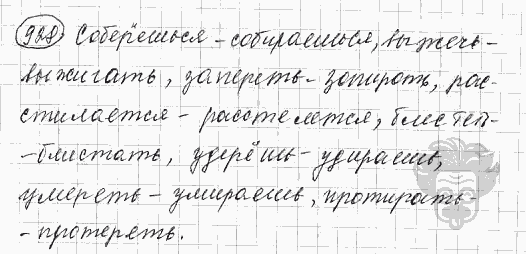 928 Соберёшься - собираешься, выжечь -
выжигать, запереть - запирать, рас-
стилается - расстелется, блестеть
- блистать, удерёшь - удираешь,
умереть - умираешь, протирать -
- протереть.